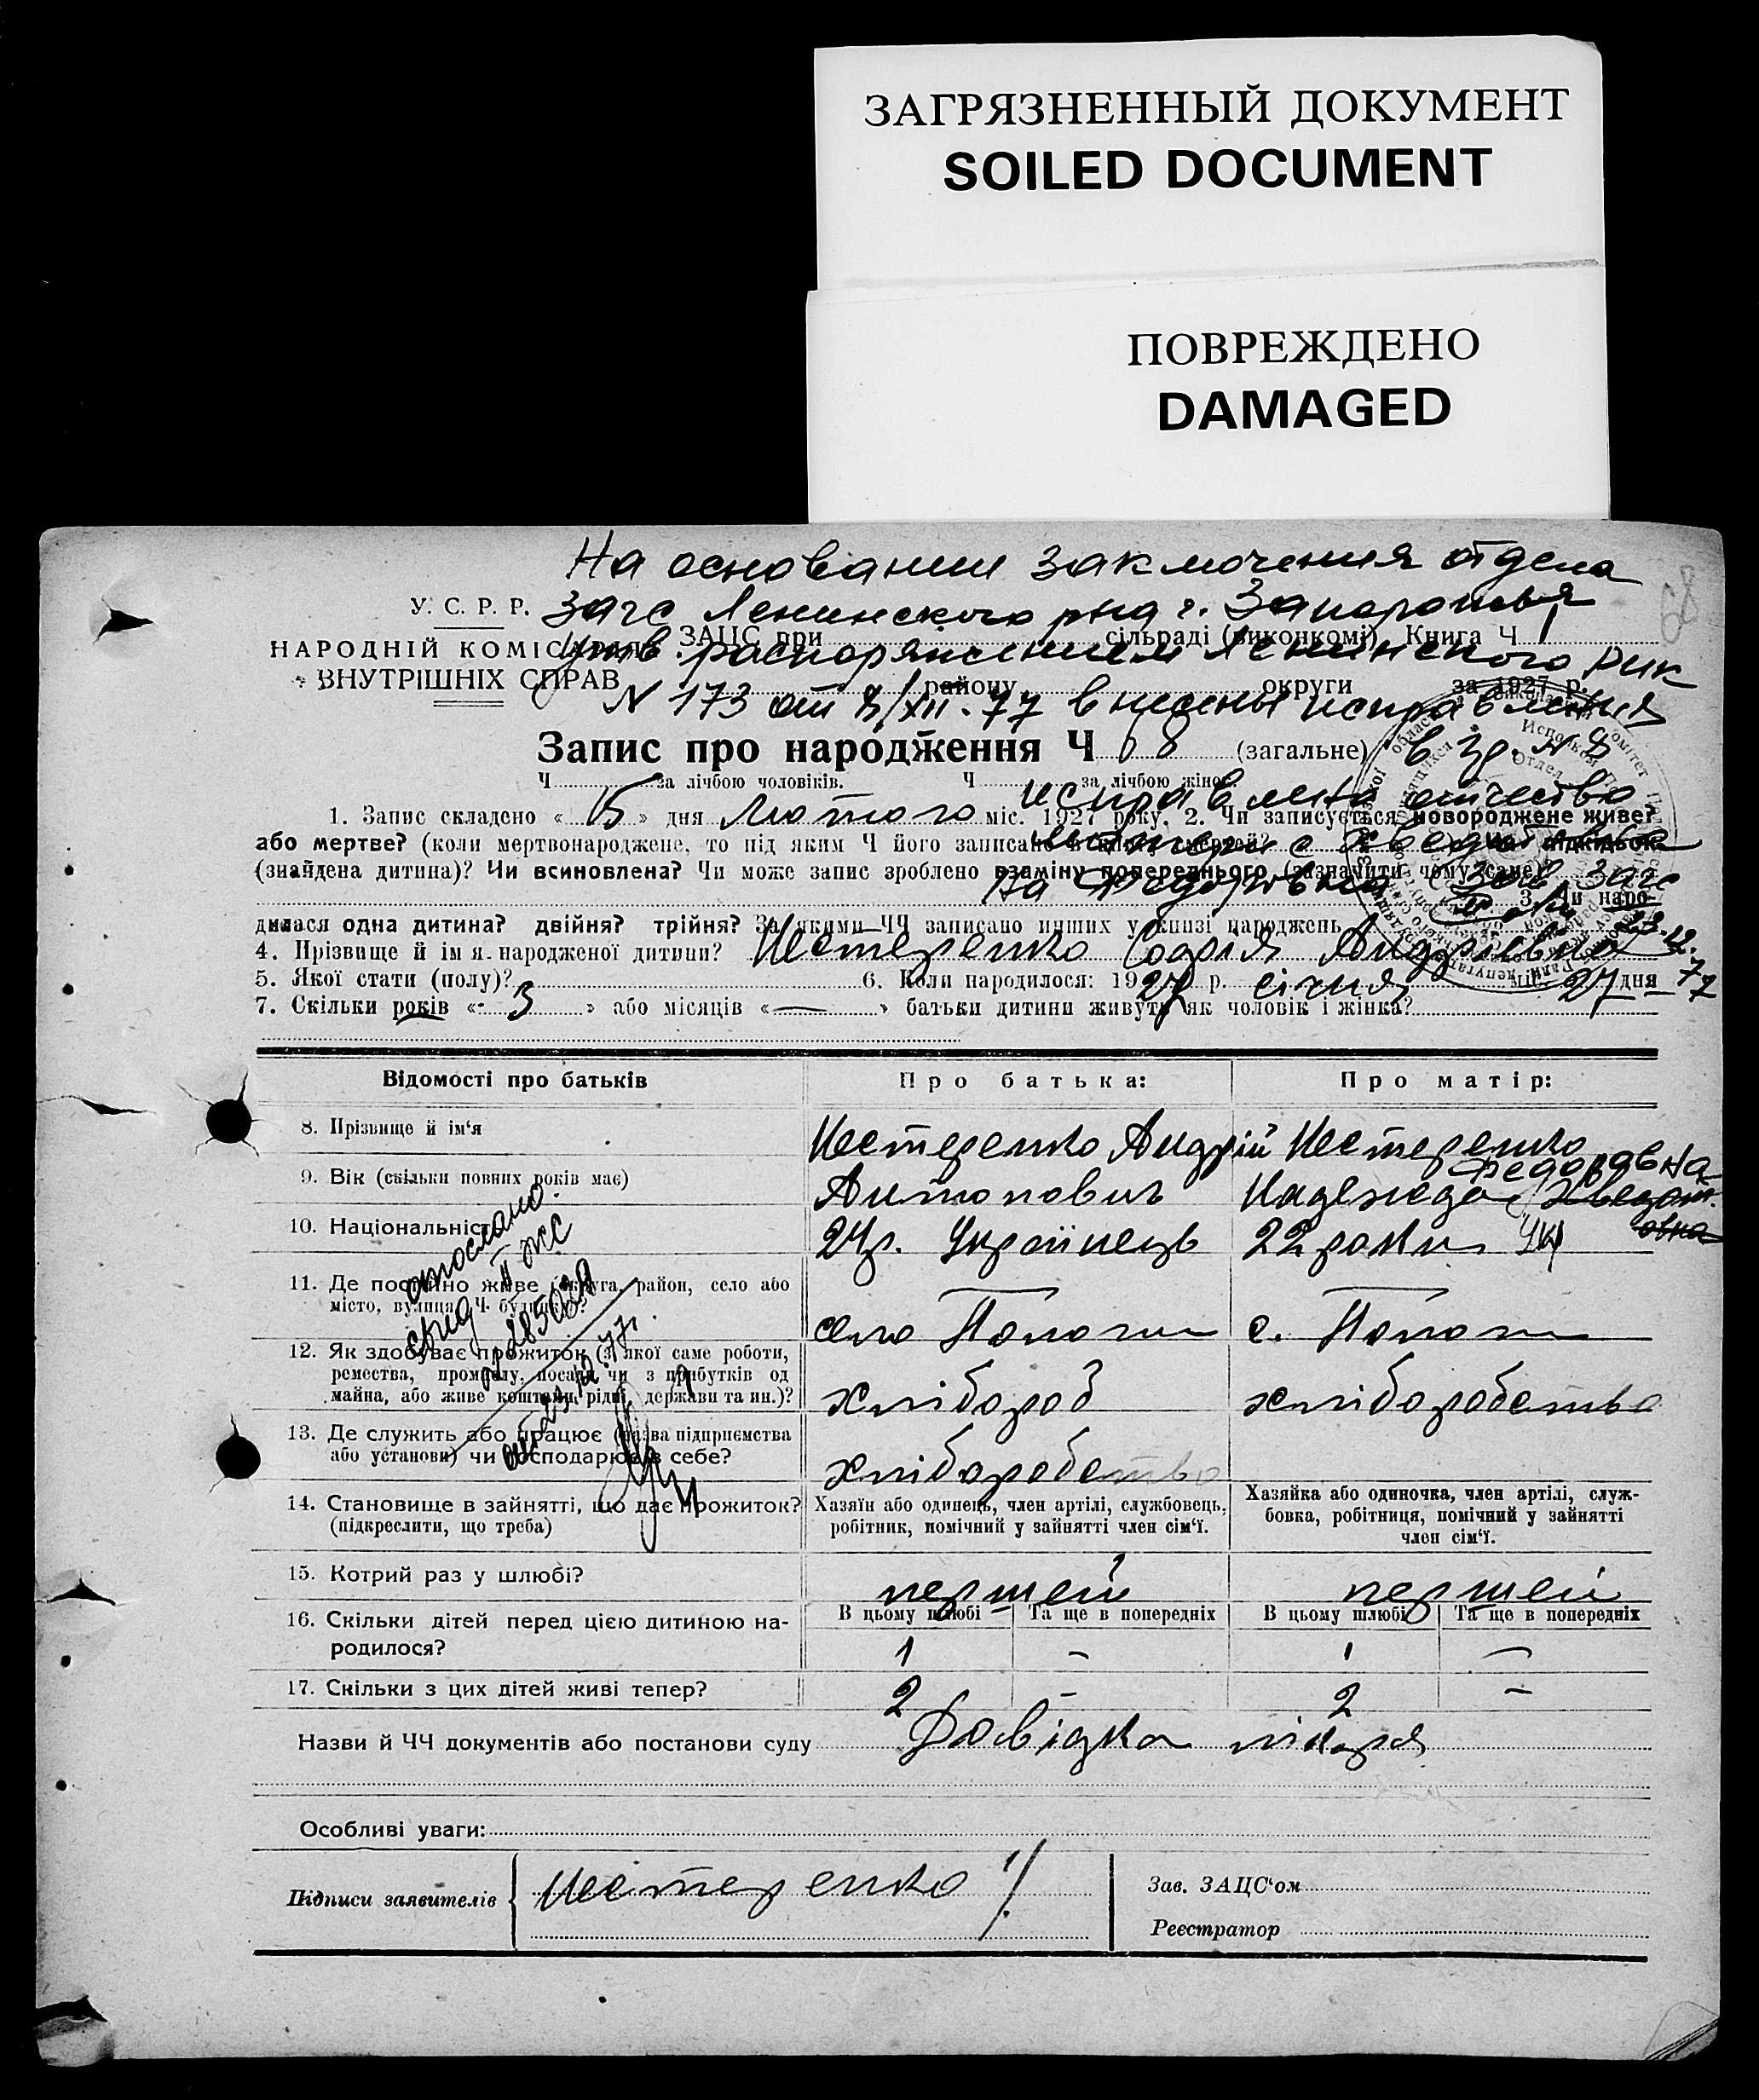 ЗАГРЯЗНЕННЫЙ ДОКУМЕНТ
SOILED DOCUMENT
ПОВРЕЖДЕНО
DAMAGED
68
На основании заключения отдела
загс Ленинского р-на г. Запорожья
утв. распоряжением Ленинского рик
N 173 от 8/XII-77 внесены исправления
в гр. N 8
исправлено отчество
матери с
на Федоровна
Зав. Загс
23.12.77
У. С. Р. Р.
НАРОДНІЙ КОМІСАРІЯТ
ВНУТРІШНІХ СПРАВ
ЗАЦС при сільраді (виконкомі) Книга Ч 1
району округи за 1927 р.
Запис про народження Ч 68 (загальне)
Ч за лічбою чоловіків. Ч за лічбою жінок.
1. Запис складено « 15 » дня Лютого міс. 1927 року. 2. Чи записується новороджене живе?
або мертве? (коли мертвонароджене, то під яким Ч його записано в книзі смертей? підкідьок
(знайдена дитина)? Чи всиновлена? Чи може запис зроблено взаміну попереднього (зазначити чому саме)?
3. Чи наро-
дилася одна дитина? двійня? трійня? За якими ЧЧ записано инших у книзі народжень
4. Прізвище й ім'я народженої дитини? Нестеренко Софія Андріївна
5. Якої стати (полу)? 6. Коли народилося: 1927 р. січня міс. 27 дня
7. Скільки років « 3 » або місяців « — » батьки дитини живуть як чоловік і жінка?
Відомості про батьків
Про батька:
Про матір:
8. Прізвище й ім'я
Нестеренко Андрій
Антонович
Нестеренко
Надежда
Федоровна
9. Вік (скільки повних років має)
10. Національність
24р. Українець
22 роки Ук
11. Де постійно живе (округа, район, село або
місто, вулиця, Ч будинку)?
село Пологи
с. Пологи
12. Як здобуває прожиток (з якої саме роботи,
ремества, промислу, посади чи з прибутків од
майна, або живе коштами рідні, держави та ин.)?
хлібороб
хлібороб­ство
13. Де служить або працює (назва підприємства
або установи) чи господарює в себе?
хліборобство
14. Становище в зайнятті, що дає прожиток?
(підкреслити, що треба)
Хазяїн або одинець, член артілі, службовець,
робітник, помічний у зайнятті член сім'ї.
Хазяйка або одиночка, член артілі, служ-
бовка, робітниця, помічний у зайнятті
член сім'ї.
15. Котрий раз у шлюбі?
першей
першей
16. Скільки дітей перед цією дитиною на-
родилося?
В цьому шлюбі Та ще в попередніх
В цьому шлюбі Та ще в попередніх
1 – 1 –
17. Скільки з цих дітей живі тепер?
2 – 2 –
отослано
Назви й ЧЧ документів або постанови суду Довідка лікаря
Особливі уваги:
Підписи заявителів
Нестеренко
Зав. ЗАЦС'ом
Реєстратор